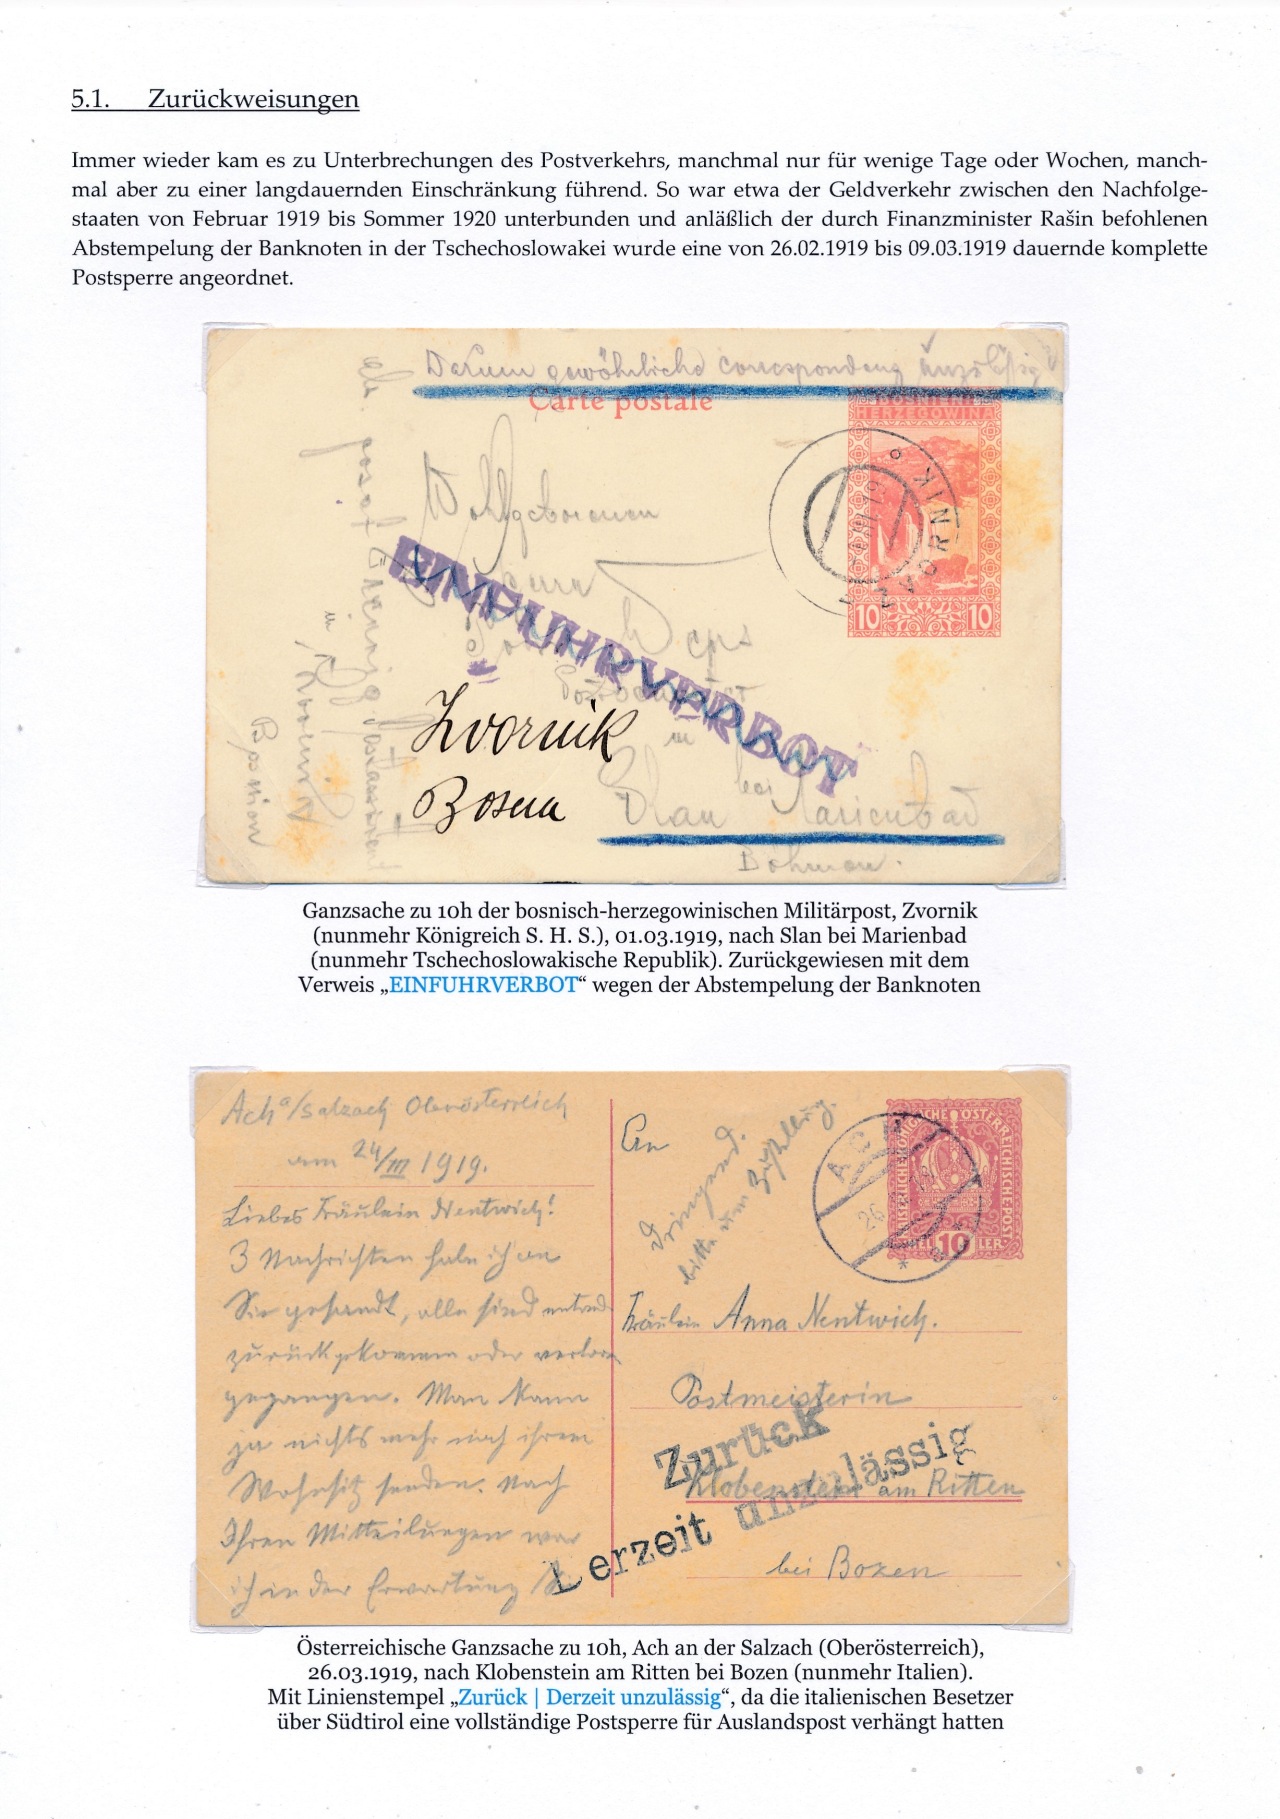 5.1. Zurückweisungen
Immer wieder kam es zu Unterbrechungen des Postverkehrs, manchmal nur für wenige Tage oder Wochen, manch-
mal aber zu einer langdauernden Einschränkung führend. So war etwa der Geldverkehr zwischen den Nachfolge-
staaten von Februar 1919 bis Sommer 1920 unterbunden und anläßlich der durch Finanzminister Rašin befohlenen
Abstempelung der Banknoten in der Tschechoslowakei wurde eine von 26.02.1919 bis 09.03.1919 dauernde komplette
Postsperre angeordnet.
Darum gewöhnliche correspondenz unzulässig
Carte postale
HERZEGOWINA
ZVORNIK
10 10
Wohlgeboren
EINFUHRVERBOT
in
Zvornik
Bosna
bei Marienbad
Böhmen.
in
Bosnien
Ganzsache zu 10h der bosnisch-herzegowinischen Militärpost, Zvornik
(nunmehr Königreich S. H. S.), 01.03.1919, nach Slan bei Marienbad
(nunmehr Tschechoslowakische Republik). Zurückgewiesen mit dem
Verweis „EINFUHRVERBOT“ wegen der Abstempelung der Banknoten
Ach a/Salzach Oberösterreich
am 24/III 1919.
Liebes Fräulein Nentwich!
3 Nachrichten habe ich an
Sie gesandt, alle sind entwed
zurückgekommen oder verloren
gegangen. Man kann
ja nichts mehr nach ihrem
Wohnsitz senden. Nach
Ihren Mitteilungen war
ich in der Erwartung
An
Dringend.
bitte um
ACH
KAISERLICHE KÖNIGLICHE ÖSTERREICHISCHE POST
10
Fräulein Anna Nentwich.
Postmeisterin
Zurück
Klobenstein am Ritten
Derzeit unzulässig
bei Bozen
Österreichische Ganzsache zu 10h, Ach an der Salzach (Oberösterreich),
26.03.1919, nach Klobenstein am Ritten bei Bozen (nunmehr Italien).
Mit Linienstempel „Zurück | Derzeit unzulässig“, da die italienischen Besetzer
über Südtirol eine vollständige Postsperre für Auslandspost verhängt hatten